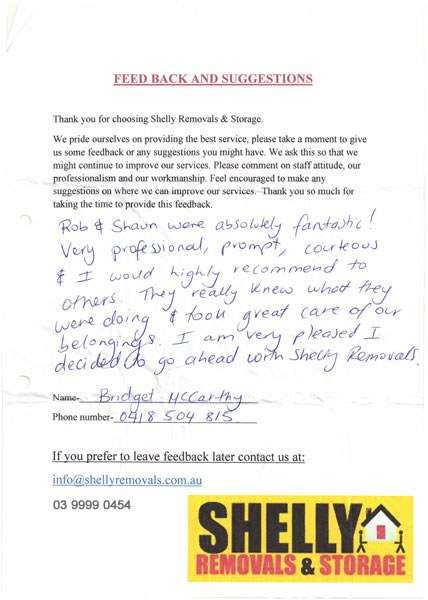 FEED BACK AND SUGGESTIONS
Thank you for choosing Shelly Removals & Storage.
We pride ourselves on providing the best service, please take a moment to give
us some feedback or any suggestions you might have. We ask this so that we
might continue to improve our services. Please comment on staff attitude, our
professionalism and our workmanship. Feel encouraged to make any
suggestions on where we can improve our services. Thank you so much for
taking the time to provide this feedback.
Rob & Shaun were absolutely fantastic!
Very professional, prompt, courteous
& I would highly recommend to
others. They really knew what they
were doing & took great care of our
belongings. I am very pleased I
decided to go ahead with Shelly Removals.
Name- Bridget McCarthy
Phone number- 0418 504 815
If you prefer to leave feedback later contact us at:
info@shellyremovals.com.au
03 9999 0454
SHELLY
REMOVALS & STORAGE